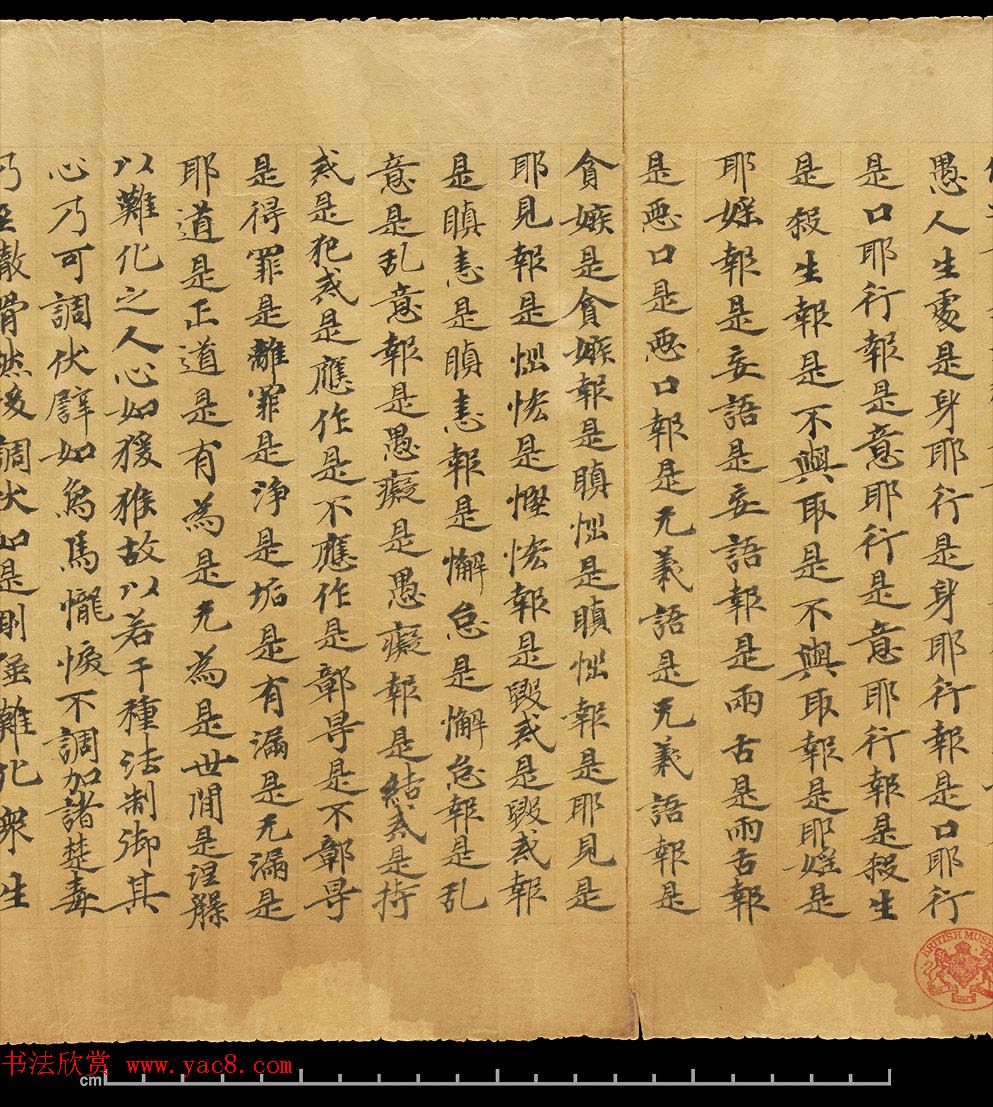 愚人生處是身耶行是身耶行報是口耶行
是口耶行報是意耶行是意耶行報是殺生
是殺生報是不與取是不與取報是耶婬是
耶婬報是妄語是妄語報是兩舌是兩舌報
是惡口是惡口報是无義語是无義語報是
貪嫉是貪嫉報是瞋恼是瞋恼報是耶見是
耶見報是慳悋是慳悋報是毀戒是毀戒報
是瞋恚是瞋恚報是懈怠是懈怠報是乱
意是乱意報是愚癡是愚癡報是結戒是持
戒是犯戒是應作是不應作是鄣㝵是不鄣㝵
是得罪是離罪是淨是垢是有漏是无漏是
耶道是正道是有為是无為是世間是涅槃
以難化之人心如猨猴故以若干種法制御其
心乃可調伏譬如烏馬悷不調加諸楚毒
乃至徹骨然後調伏如是剛强難化衆生
BRITISH MUSE
书法欣赏 www.yac8.com
cm